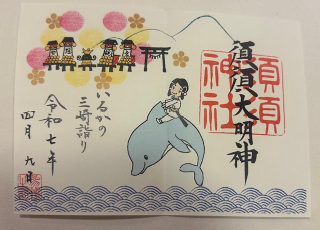 須須大明神
須須
神社
いるかの
三崎詣り
令和七年
四月九日